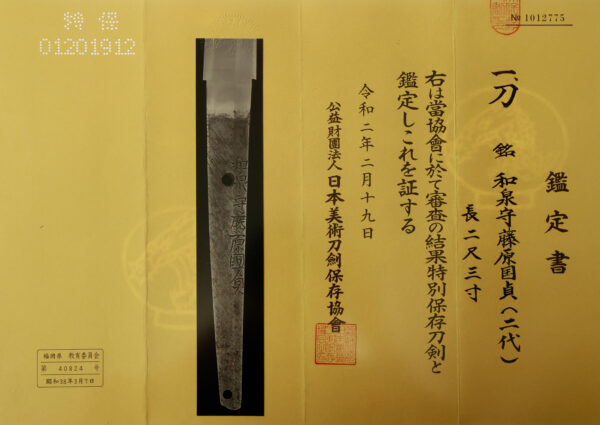 № 1012775
鑑定書
一、刀 銘 和泉守藤原国貞(二代)
長 二尺三寸
右は當協會に於て審査の結果特別保存刀剣と
鑑定しこれを証する
令和二年二月十九日
公益財團法人 日本美術刀劍保存協會
和泉守藤原國貞
特保
01201912
福岡県 教育委員会
第 40824 号
昭和38年3月7日